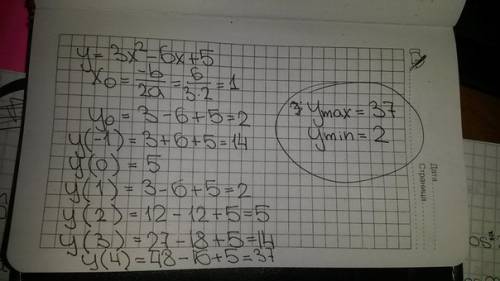 y = 3x² - 6x + 5
x₀ = -b/2a = 6/3·2 = 1
y₀ = 3 - 6 + 5 = 2
y(-1) = 3 + 6 + 5 = 14
y(0) = 5
y(1) = 3 - 6 + 5 = 2
y(2) = 12 - 12 + 5 = 5
y(3) = 27 - 18 + 5 = 14
y(4) = 48 - 16 + 5 = 37
ymax = 37
ymin = 2
Дата
Страница